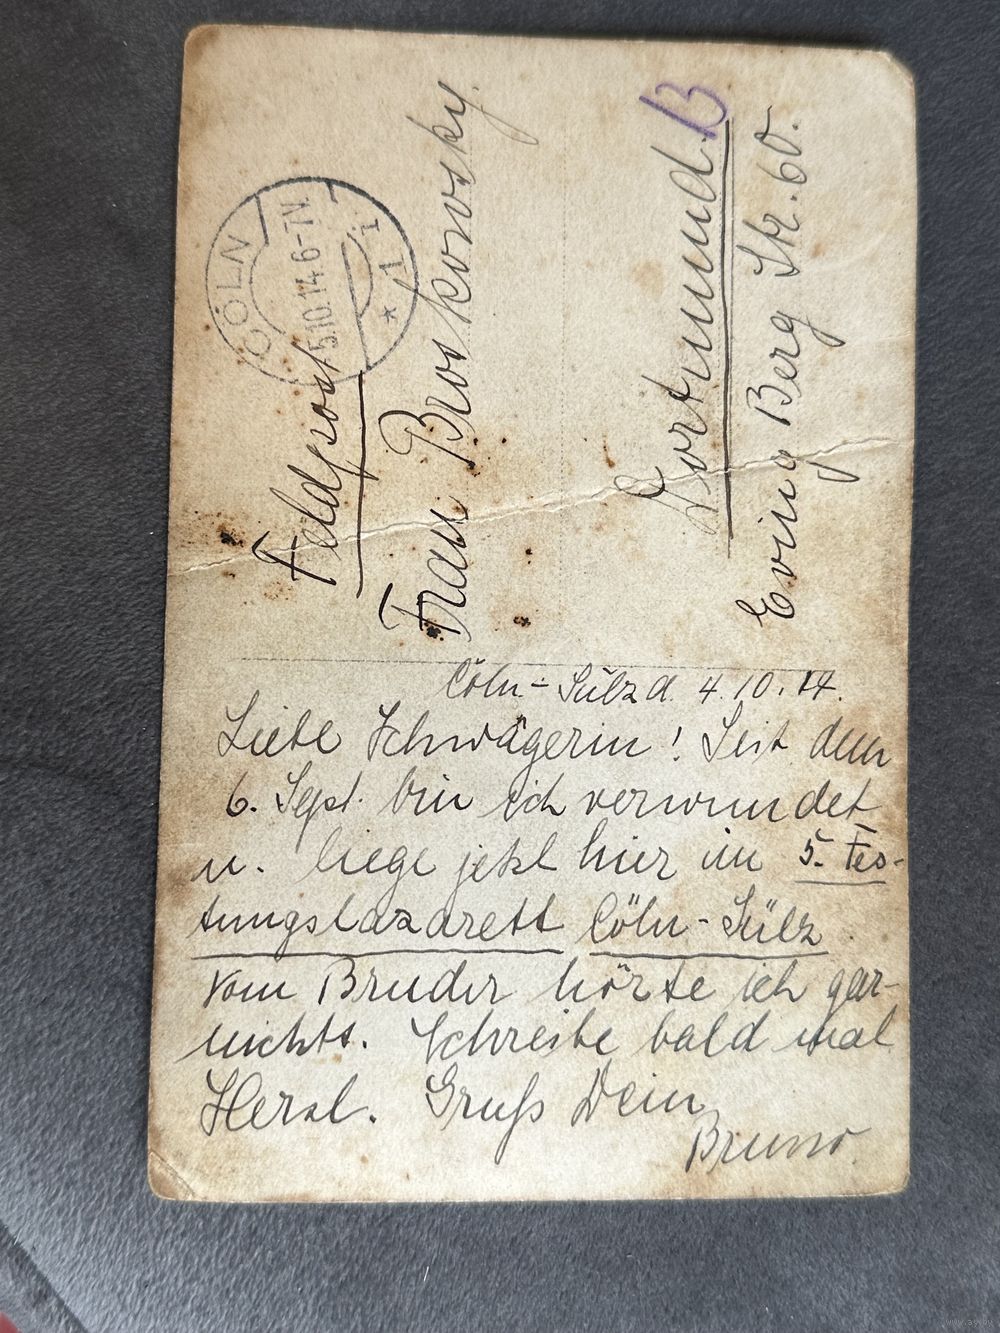 CÖLN
5.10.14.6-7V.
* 1 i
Feldpost
Frau Broskowsky.
Dortmund. 13
Eving Berg Str. 60.
Cöln-Sülz d. 4.10.14.
Liebe Schwägerin! Seit dem
6. Sept. bin ich verwundet
u. liege jetzt hier im 5. Fes-
tungslazarett Cöln-Sülz
Vom Bruder hörte ich gar-
nichts. Schreibe bald mal
Herzl. Gruß Dein
Bruno.
www.ay.by